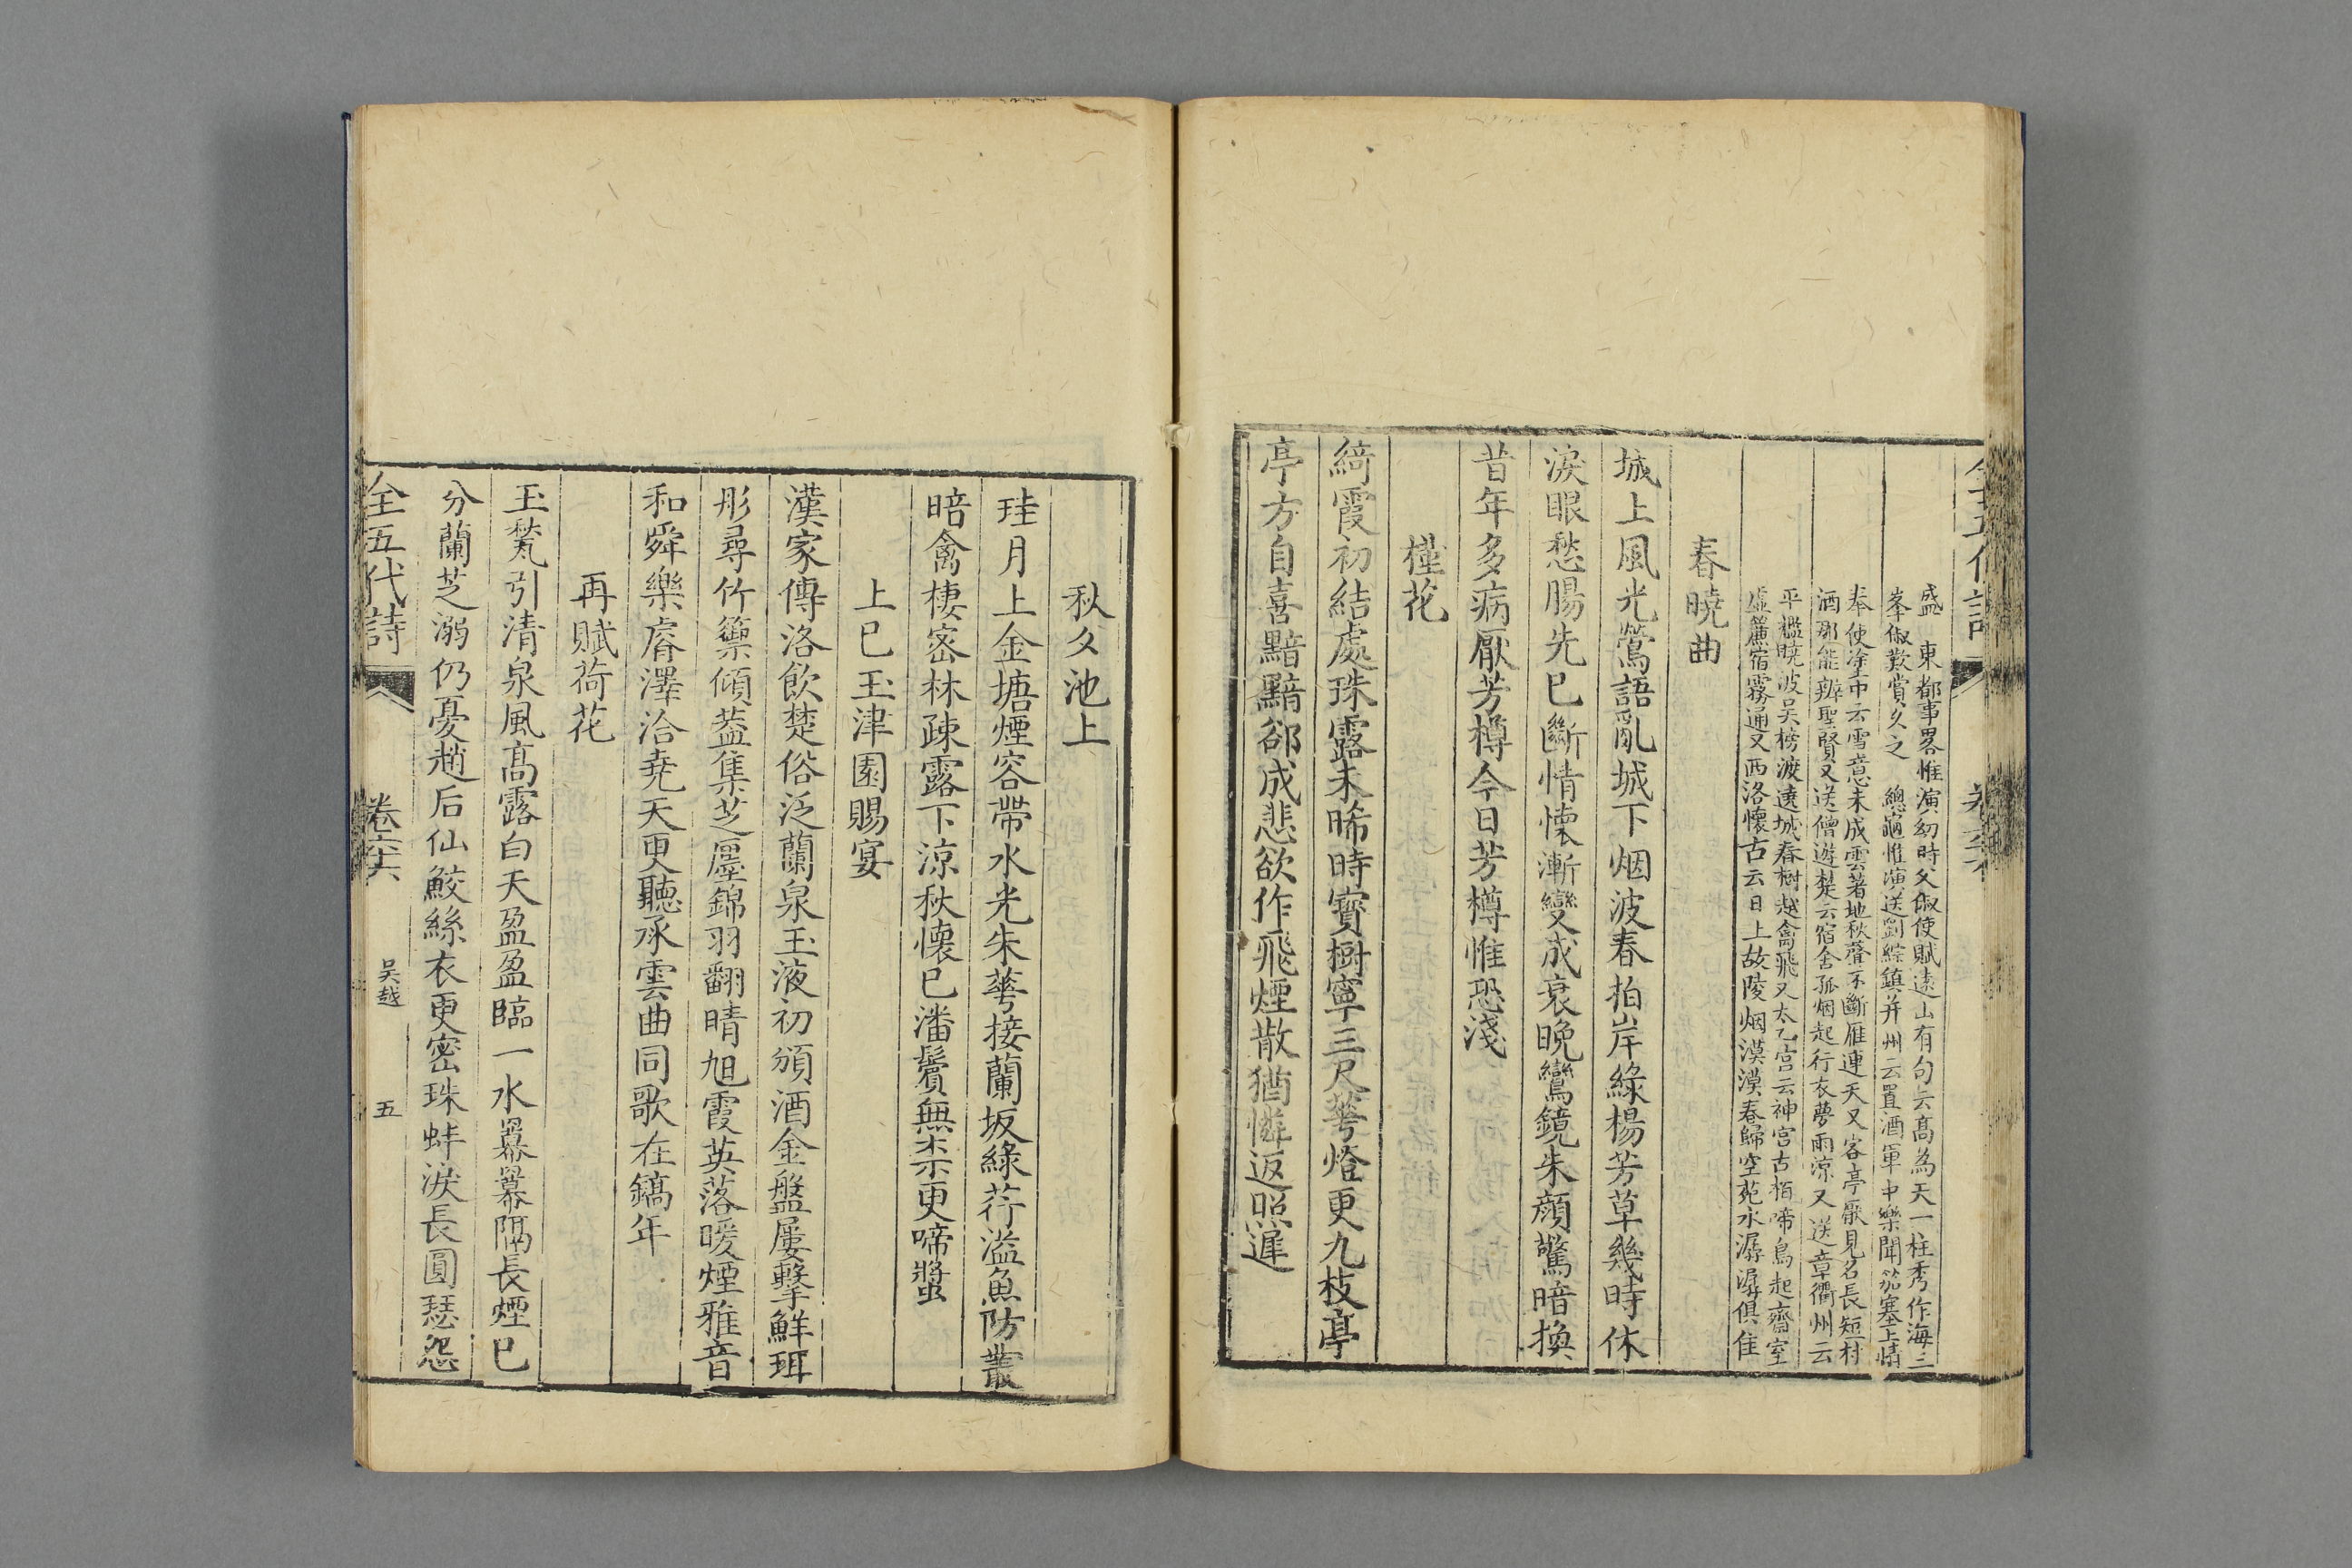 盛　東都事畧惟演幼時父俶使賦遠山有句云髙為天一柱秀作海三
峯俶歎賞久之　總龜惟演送劉綜鎮并州云置酒軍中樂聞笳塞上情
奉使塗中云雪意未成雲著地秋聲不斷雁連天又客亭厭見名長短村
酒那能辨聖賢又送僧遊楚云宿舍孤烟起行衣夢雨凉又送章衢州云
平檻曉波吴榜渡遶城春樹越禽飛又太乙宫云神宫古栢啼烏起齋室
虚簾宿霧通又西洛懷古云日上故陵烟漠漠春歸空苑水潺潺俱佳
春曉曲
城上風光鶯語亂城下烟波春拍岸綠楊芳草幾時休
淚眼愁腸先已斷情懷漸變成衰晚鸞鏡朱顔驚暗換
昔年多病厭芳樽今日芳樽惟恐淺
槿花
綺霞初結處珠露未晞時寳樹寧三尺華燈更九枝亭
亭方自喜黯黯郤成悲欲作飛煙散猶憐返照遲
秋夂池上
珪月上金塘煙容帶水光朱華接蘭坂綠荇溢魚防叢
暗禽棲宻林疎露下涼秋懷已潘鬢無柰更啼螿
上巳玉津園賜宴
漢家傳洛飲楚俗泛蘭泉玉液初頒酒金盤屢擊鮮珥
彤尋竹籞傾葢集芝廛錦羽翻晴旭霞英落暖煙雅音
和舜樂睿澤洽堯天更聽承雲曲同歌在鎬年
再賦荷花
玉甃引清泉風髙露白天盈盈臨一水羃羃隔長煙已
分蘭芝溺仍憂趙后仙鮫絲衣更密珠蚌淚長圓瑟怨
全五代詩　卷六十六　吴越　五